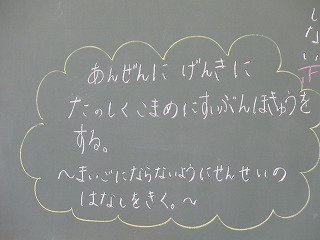 あんぜんに げんきに
たのしく こまめにすいぶんほきゅうを
する。
～まいごにならないようにせんせいの
はなしをきく。～
しない